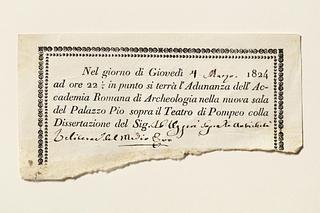 Nel giorno di Giovedì 4 Marzo. 1824
ad ore 22 ½ in punto si terrà l'Adunanza dell' Ac-
cademia Romana di Archeologia nella nuova sala
del Palazzo Pio sopra il Teatro di Pompeo colla
Dissertazione del Sig.
del Medio Evo